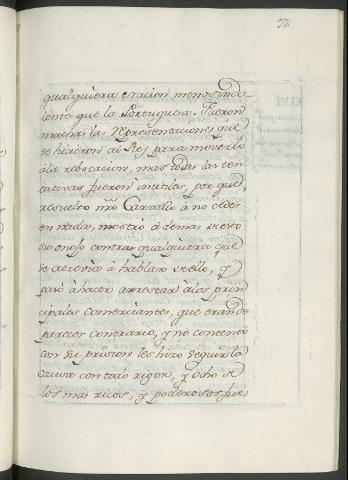 72
qualquiera eracion menos indo
lente que la Portuguesa. Fueron
muchas las Representaciones que
se hicieron al Rey para moverlo
á la rebocacion, mas todas las ten
tativas fueron inutiles, por que
resuelto nro Carvallo á no ceder
en nada, mostró ademas
su enojo contra qualquiera que
se atrevia á hablar en ello, y
pasó á hacer arrestar á los prin
cipales comerciantes, que eran de
parecer contrario, y no contento
con su prision les hizo seguir la
causa con todo rigor, y ocho de
los mas ricos, y poderosos fue